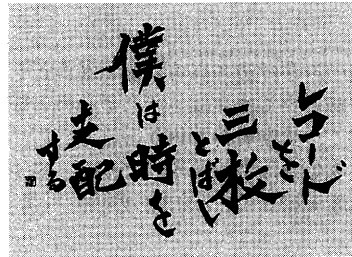 レコードを
三枚
とばし
僕は時を
支配
する